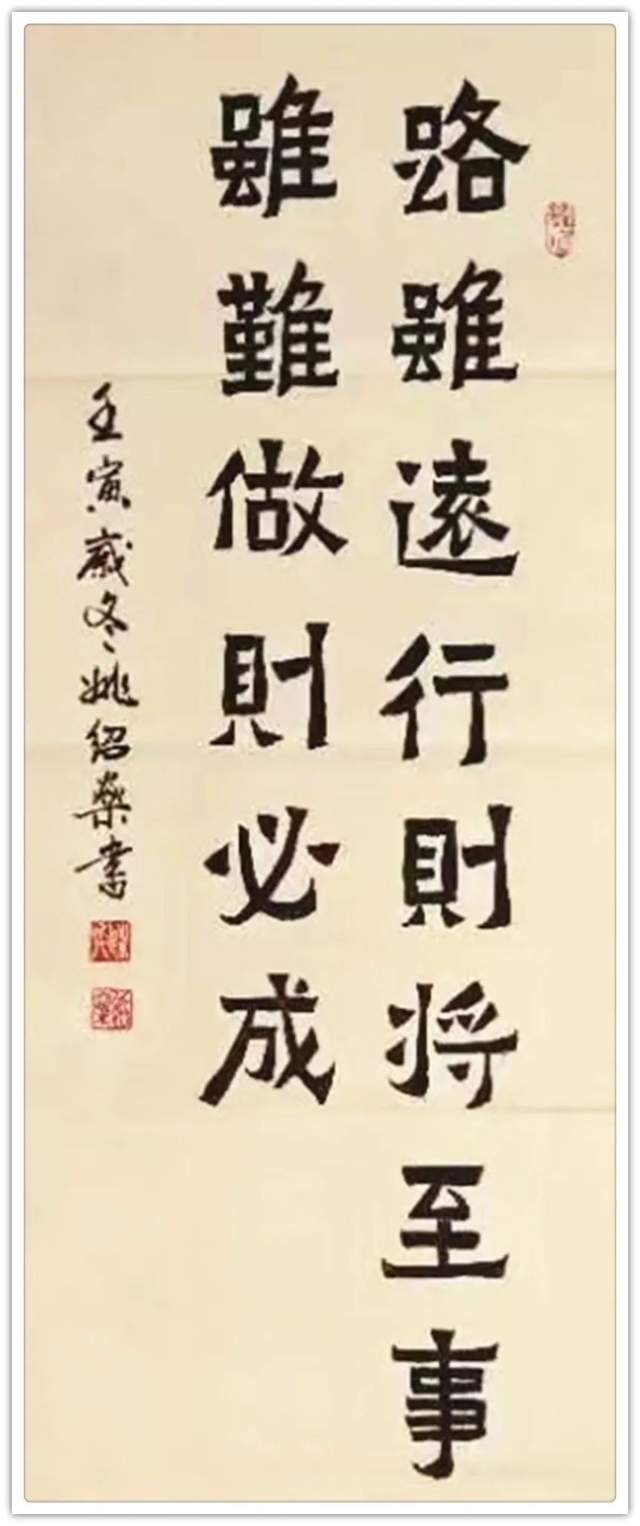 路雖遠行則将至事
雖難做則必成
壬寅歲冬姚绍燊書